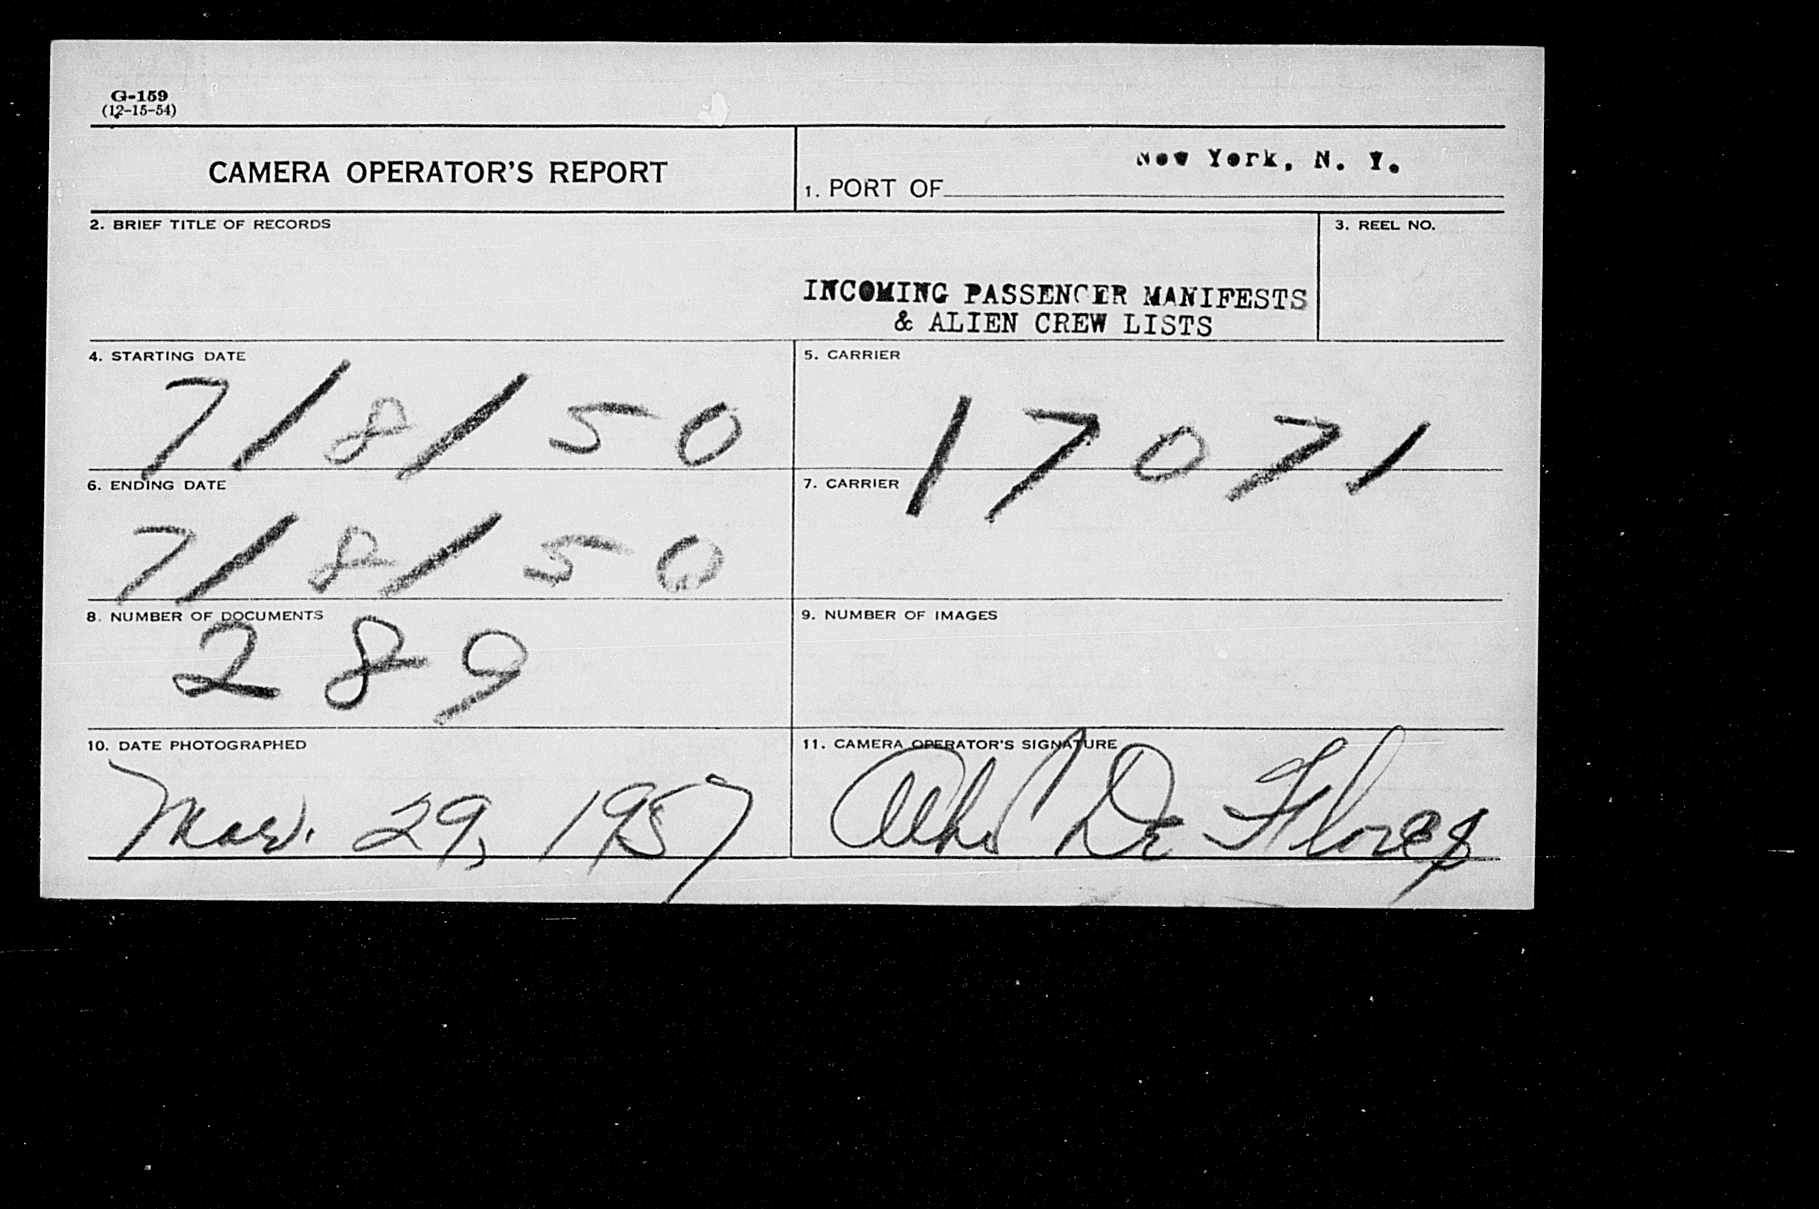 G-159
(12-15-54)
CAMERA OPERATOR'S REPORT
New York, N. Y.
1. PORT OF
2. BRIEF TITLE OF RECORDS
3. REEL NO.
INCOMING PASSENGER MANIFESTS
& ALIEN CREW LISTS
4. STARTING DATE
7/8/50
5. CARRIER
17071
6. ENDING DATE
7/8/50
7. CARRIER
8. NUMBER OF DOCUMENTS
289
9. NUMBER OF IMAGES
10. DATE PHOTOGRAPHED
Mar. 29, 1957
11. CAMERA OPERATOR'S SIGNATURE
De Flores